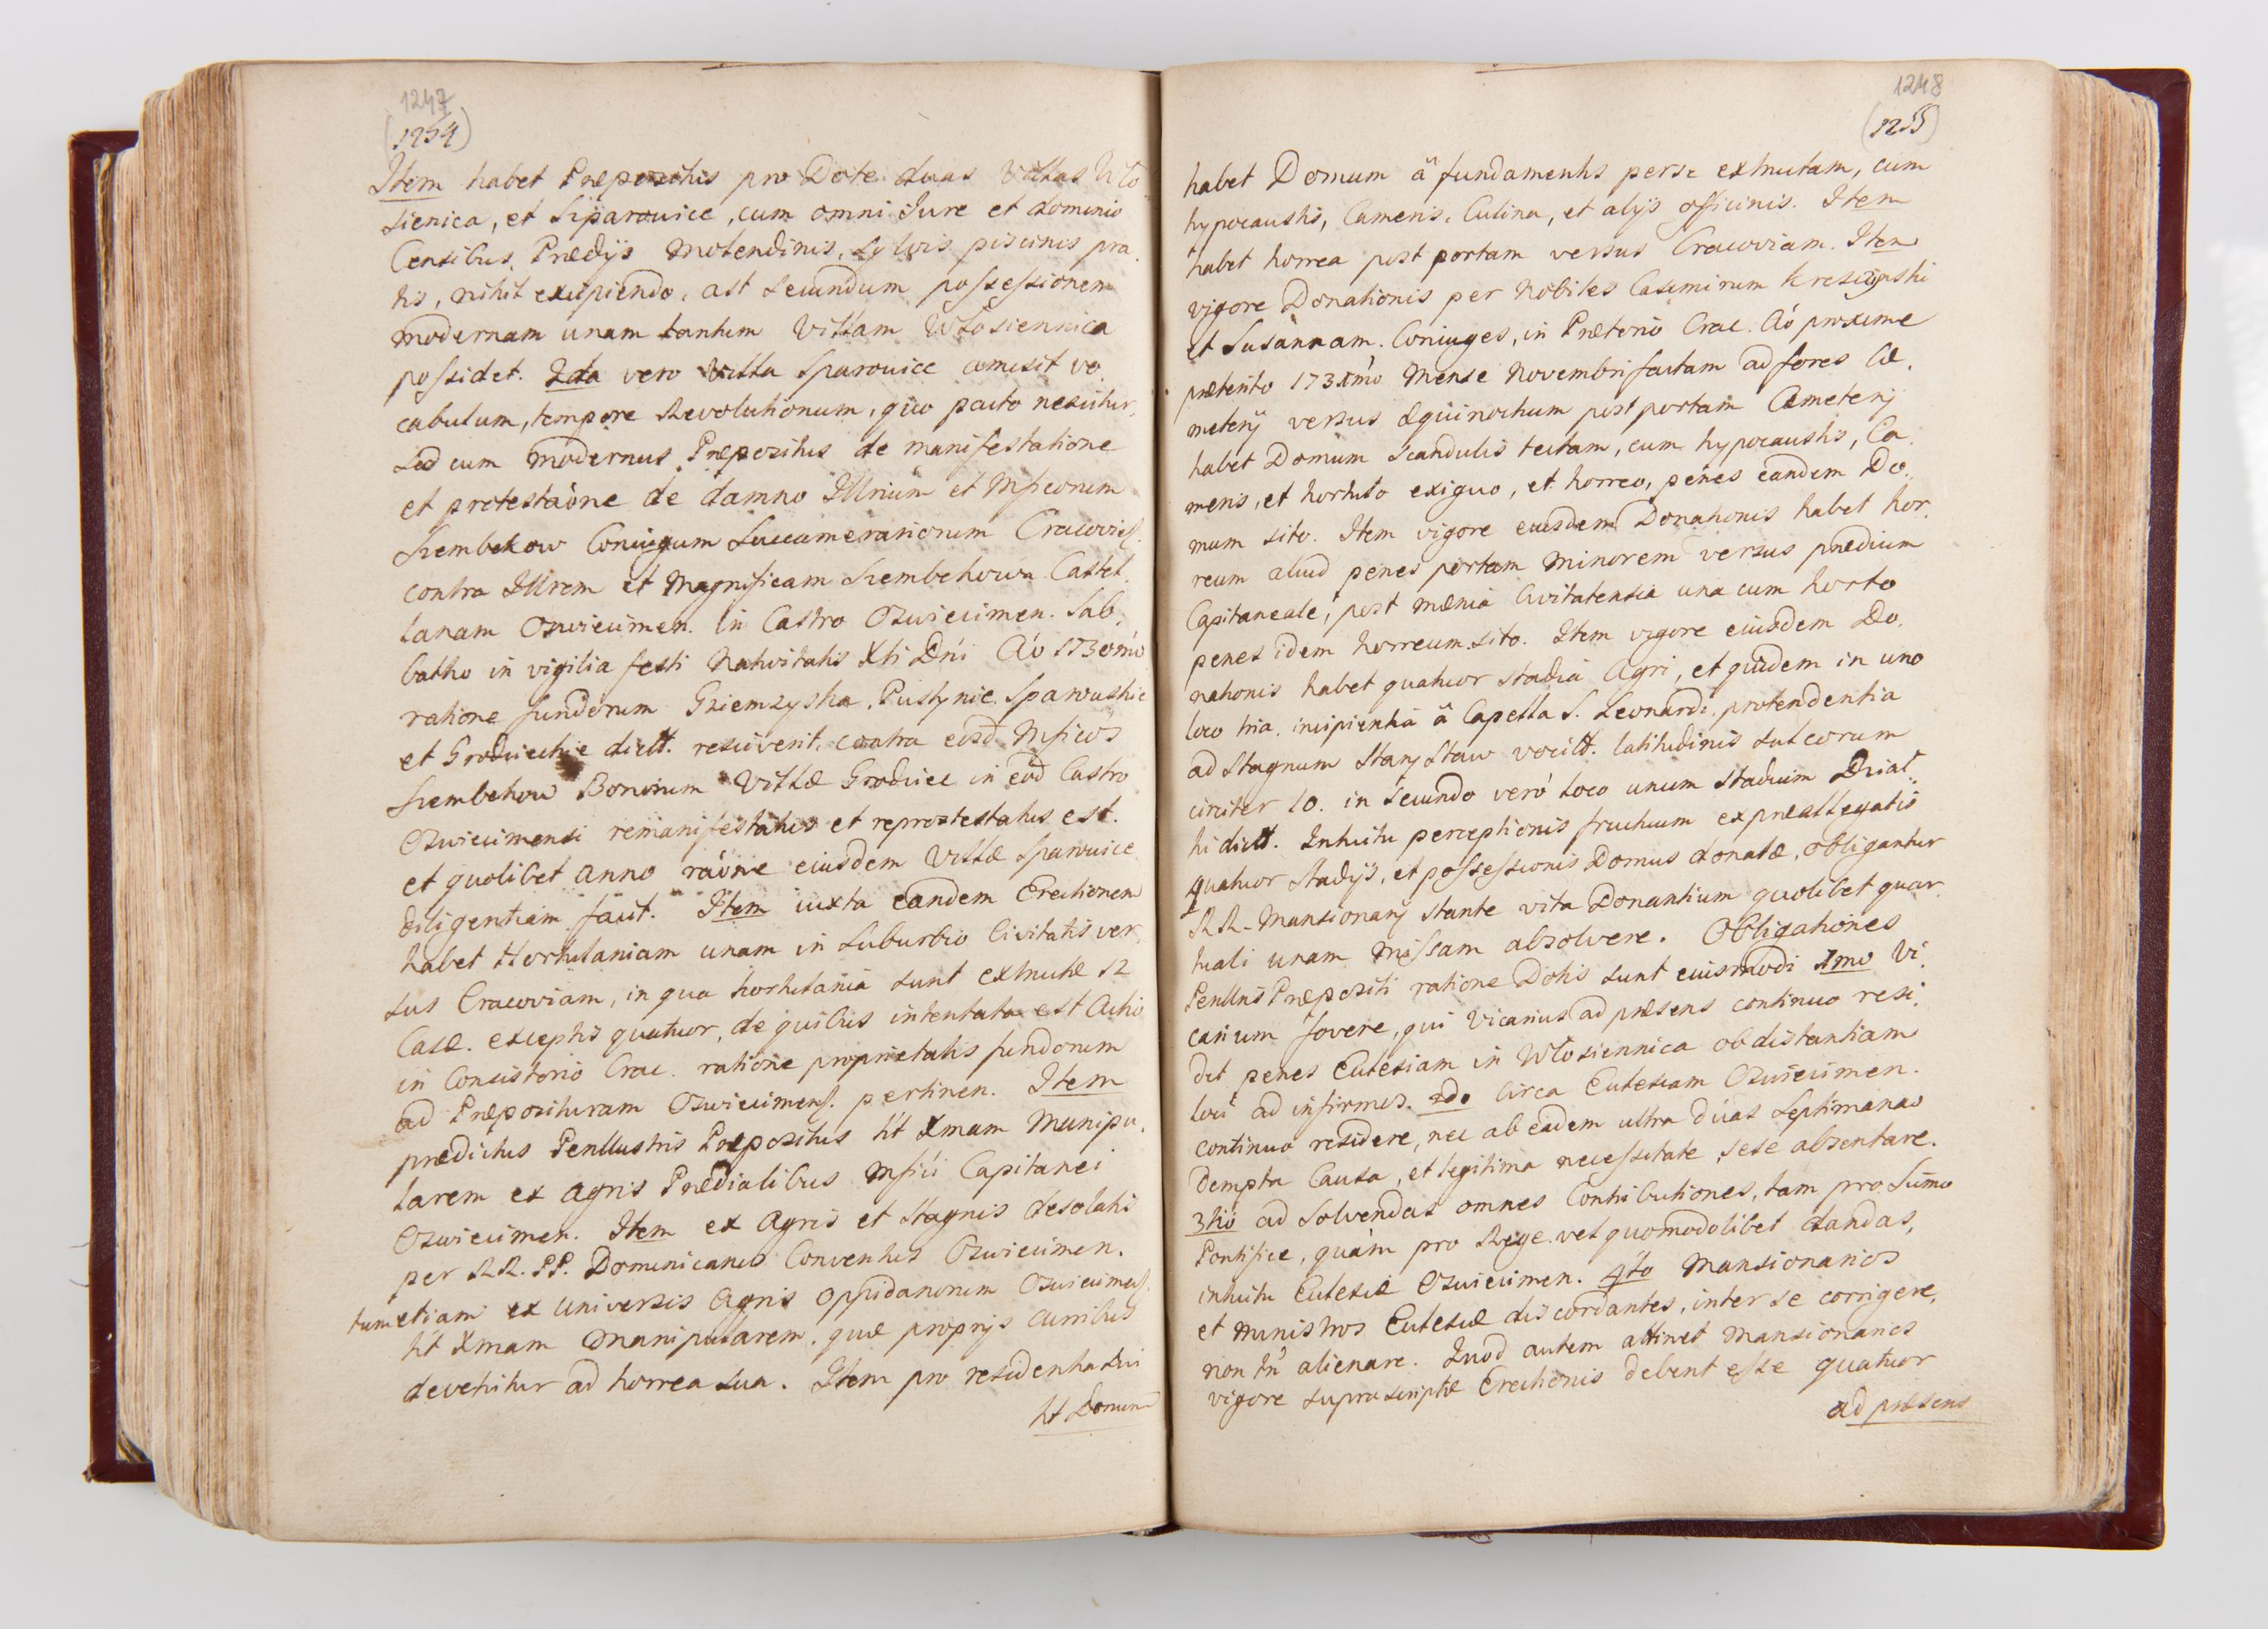 1247
(1254)
Item habet Præpositus pro Dote duas Villas Wło
sienica, et Siparowice, cum omni Jure et dominio
Censibus, Prædijs Molendinis, Sylvis piscinis pra
tis, nihil excipiendo, ast secundum possessionem
modernam unam tantum Villam Włosiennica
possidet. 2da vero Villa Sparowice amisit vo
cabulum, tempore Revolutionum, quo pacto nescitur,
sed cum modernus Præpositus de manifestatione
et protestaõne de damno Illrium et Mficorum
Szembekow Coniugum Succamerariorum Cracovies.
contra Illrem et Magnificam Szembekowa Castel
lanam Oswiecimen. in Castro Oswiecimen. Sab
batho in vigilia festi Nativitatis Xti Dni Aó 1730mó
ratione fundorum Gziemzyska, Pustynie, Sparowskie
et Grodzieckie dictt. resciverit, contra eosd. Mficos
Szembekow Bonorum Villæ Grodziec in eod Castro
Oswiecimensi remanifestatus et reprotestatus est.
et quolibet Anno raõne eiusdem Villæ Sparowice
diligentiam facit. Item iuxta eandem Erectionem
habet Hortulaniam unam in suburbio Civitatis ver
sus Cracoviam, in qua hortulania sunt extructæ 12
Casæ. exceptis quatuor, de quibus intentata est Actio
in Consistorio Crac. ratione proprietatis fundorum
ad Præposituram Oswiecimens. pertinen. Item
prædictus Perillustris Præpositus ht Xmam Manipu
larem ex Agris Prædialibus Mfici Capitanei
Oswiecimen. Item ex Agris et stagnis desolatis
per RR. PP. Dominicanos Conventus Oswiecimen.
tum etiam ex universis Agris oppidanorum Oswiecimens.
ht Xmam Manipularem. quæ proprijs curribus
devehitur ad horrea sua. Item pro residentia sui
ht Domum
1248
(1255)
habet Domum â fundamentis per se extructam, cum
hypocaustis, Cameris, Culina, et alijs officinis. Item
habet horrea post portam versus Cracoviam. Item
vigore Donationis per Nobiles Casimirum
et Susannam Coniuges, in Prætorio Crac. Aó proxime
præterito 173Xmó Mense Novembri factam ad fores Cæ
meterij versus Æquinoctium post portam Cæmeterij
habet Domum Scandulis tectam, cum hypocaustis, Ca
meris, et hortulo exiguo, et horreo, penes eandem Do
mum sito. Item vigore eiusdem Donationis habet hor
reum aliud penes portam minorem versus prædium
Capitaneale, post mænia Civitatensia una cum horto
penes idem horreum sito. Item vigore eiusdem Do
nationis habet quatuor stadia Agri, et quidem in uno
loco tria, incipientia â Capella S. Leonardi, protendentia
ad Stagnum Stary Staw vocitt. latitudinis sulcorum
circiter 10. in secundo veró loco unum stadium Dzial
ki dictt. Intuitu perceptionis fructuum ex præallegatis
quatuor stadijs, et possessionis Domus donatæ, obligantur
RR. Mansionarij stante vita Donantium quolibet quar
tuali unam Missam absolvere. Obligationes
Perillris Præpositi ratione Dotis sunt eiusmodi 1mo Vi
carium fovere, qui Vicarius ad præsens continuo resi
det penes Ecclesiam in Włosiennica ob distantiam
loci ad infirmos. 2do Circa Ecclesiam Oswiecimen.
continuo residere, nec ab eadem ultra duas septimanas
dempta Causa, et legitima necessitate sese absentare.
3tió ad solvendas omnes Contributiones, tam pro Sumo
Pontifice, quám pro Rege vel quomodolibet dandas,
intuitu Ecclesiæ Oswiecimen. 4tó Mansionarios
et ministros Ecclesiæ discordantes, inter se corrigere,
non tn alienare. Quod autem attinet Mansionarios
vigore suprascriptæ Erectionis debent esse quatuor
ad præsens